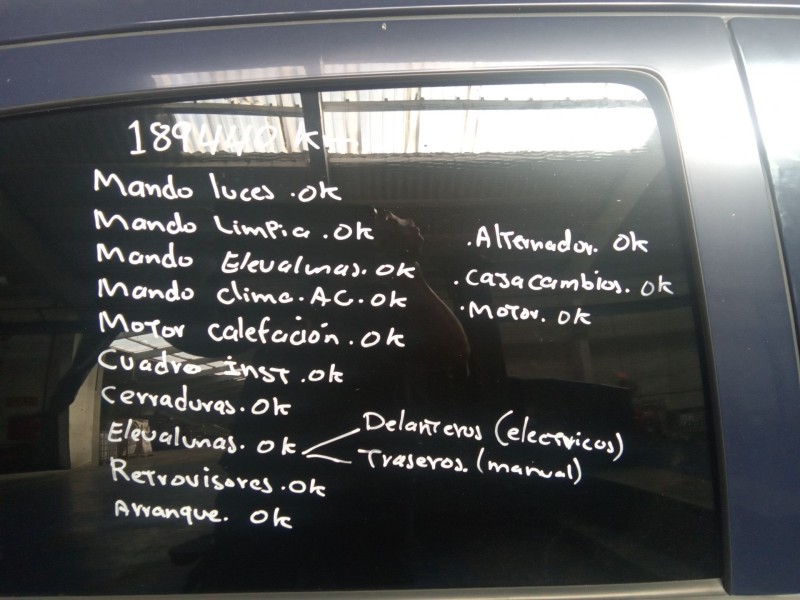 189440 km
Mando luces .ok
Mando Limpia .ok
Mando Elevalunas. ok
Mando clima. AC. ok
Motor calefación. ok
Cuadro inst .ok
Cerraduras. ok
Elevalunas. ok
Delanteros (electricos)
Traseros. (manual)
Retrovisores .ok
Arranque. ok
.Alternador. ok
.Cajacambios. ok
.Motor. ok